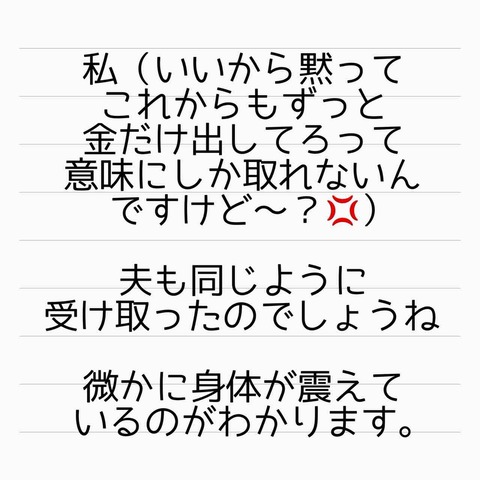 私（いいから黙って
これからもずっと
金だけ出してろって
意味にしか取れないん
ですけど〜？💢）
夫も同じように
受け取ったのでしょうね
微かに身体が震えて
いるのがわかります。